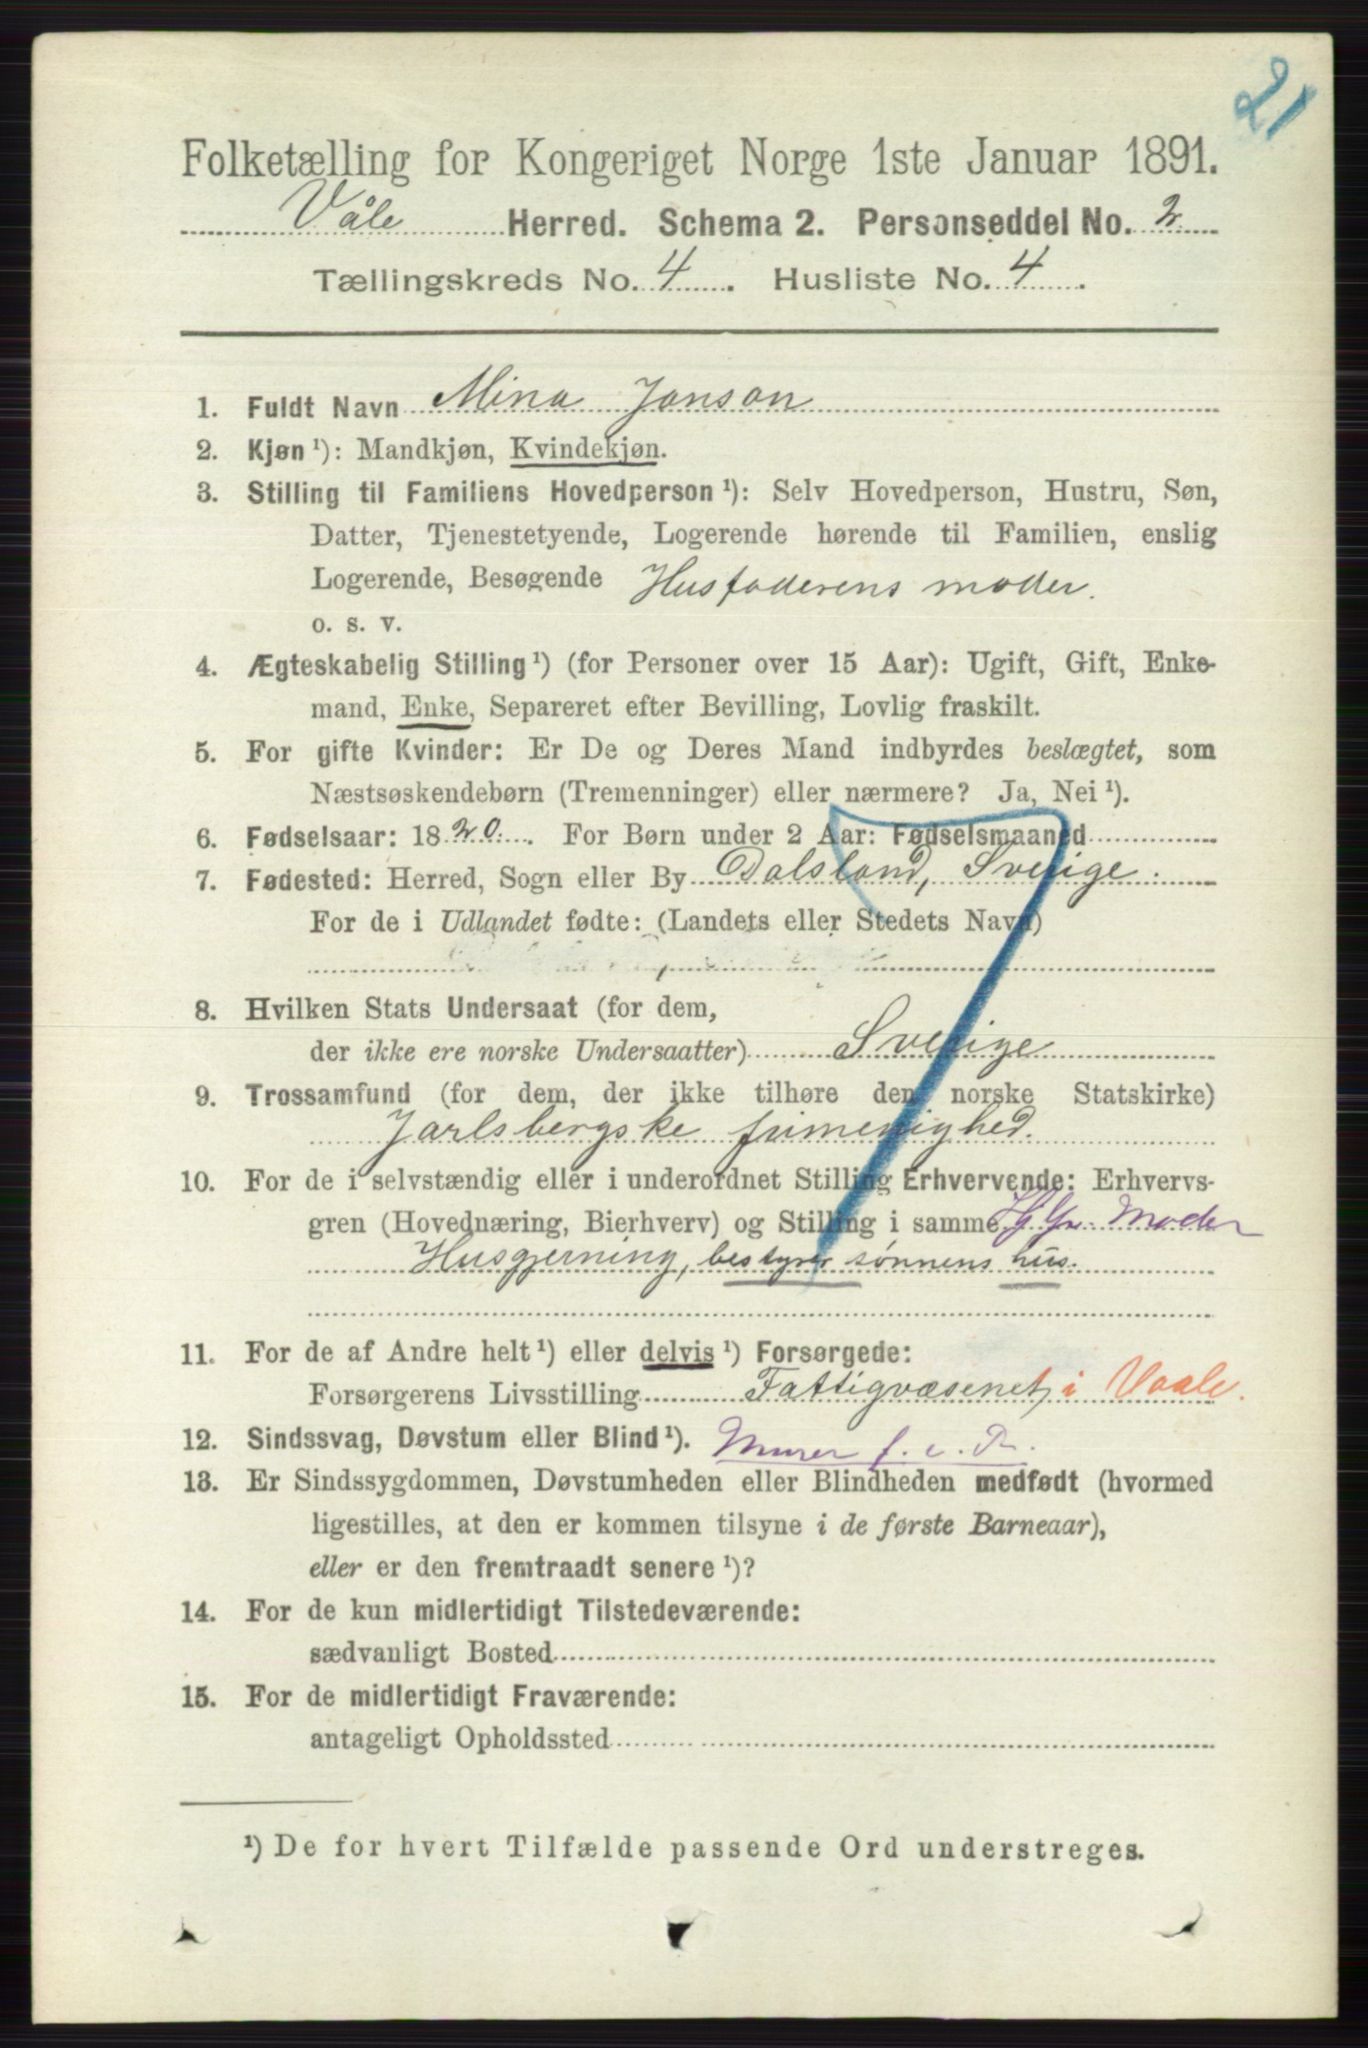 21
Folketælling for Kongeriget Norge 1ste Januar 1891.
Våle Herred. Schema 2. Personseddel No. 2
Tællingskreds No. 4. Husliste No. 4.
1. Fuldt Navn Mina Janson
2. Kjøn ¹): Mandkjøn, Kvindekjøn.
3. Stilling til Familiens Hovedperson ¹): Selv Hovedperson, Hustru, Søn,
Datter, Tjenestetyende, Logerende hørende til Familien, enslig
Logerende, Besøgende Husfaderens moder.
o. s. v.
4. Ægteskabelig Stilling ¹) (for Personer over 15 Aar): Ugift, Gift, Enke-
mand, Enke, Separeret efter Bevilling, Lovlig fraskilt.
5. For gifte Kvinder: Er De og Deres Mand indbyrdes beslægtet, som
Næstsøskendebørn (Tremenninger) eller nærmere? Ja, Nei ¹).
6. Fødselsaar: 1820. For Børn under 2 Aar: Fødselsmaaned
7. Fødested: Herred, Sogn eller By Dalsland, Sverige.
For de i Udlandet fødte: (Landets eller Stedets Navn)
8. Hvilken Stats Undersaat (for dem,
der ikke ere norske Undersaatter) Sverige
9. Trossamfund (for dem, der ikke tilhøre den norske Statskirke)
Jarlsbergske frimenighed.
10. For de i selvstændig eller i underordnet Stilling Erhvervende: Erhvervs-
gren (Hovednæring, Bierhverv) og Stilling i samme Moder
Husgjerning, bestyrer sønnens hus.
11. For de af Andre helt ¹) eller delvis ¹) Forsørgede:
Forsørgerens Livsstilling Fattigvæsenet, i Vaale.
12. Sindssvag, Døvstum eller Blind ¹). Murer f. e. R.
13. Er Sindssygdommen, Døvstumheden eller Blindheden medfødt (hvormed
ligestilles, at den er kommen tilsyne i de første Barneaar),
eller er den fremtraadt senere ¹)?
14. For de kun midlertidigt Tilstedeværende:
sædvanligt Bosted
15. For de midlertidigt Fraværende:
antageligt Opholdssted
¹) De for hvert Tilfælde passende Ord understreges.